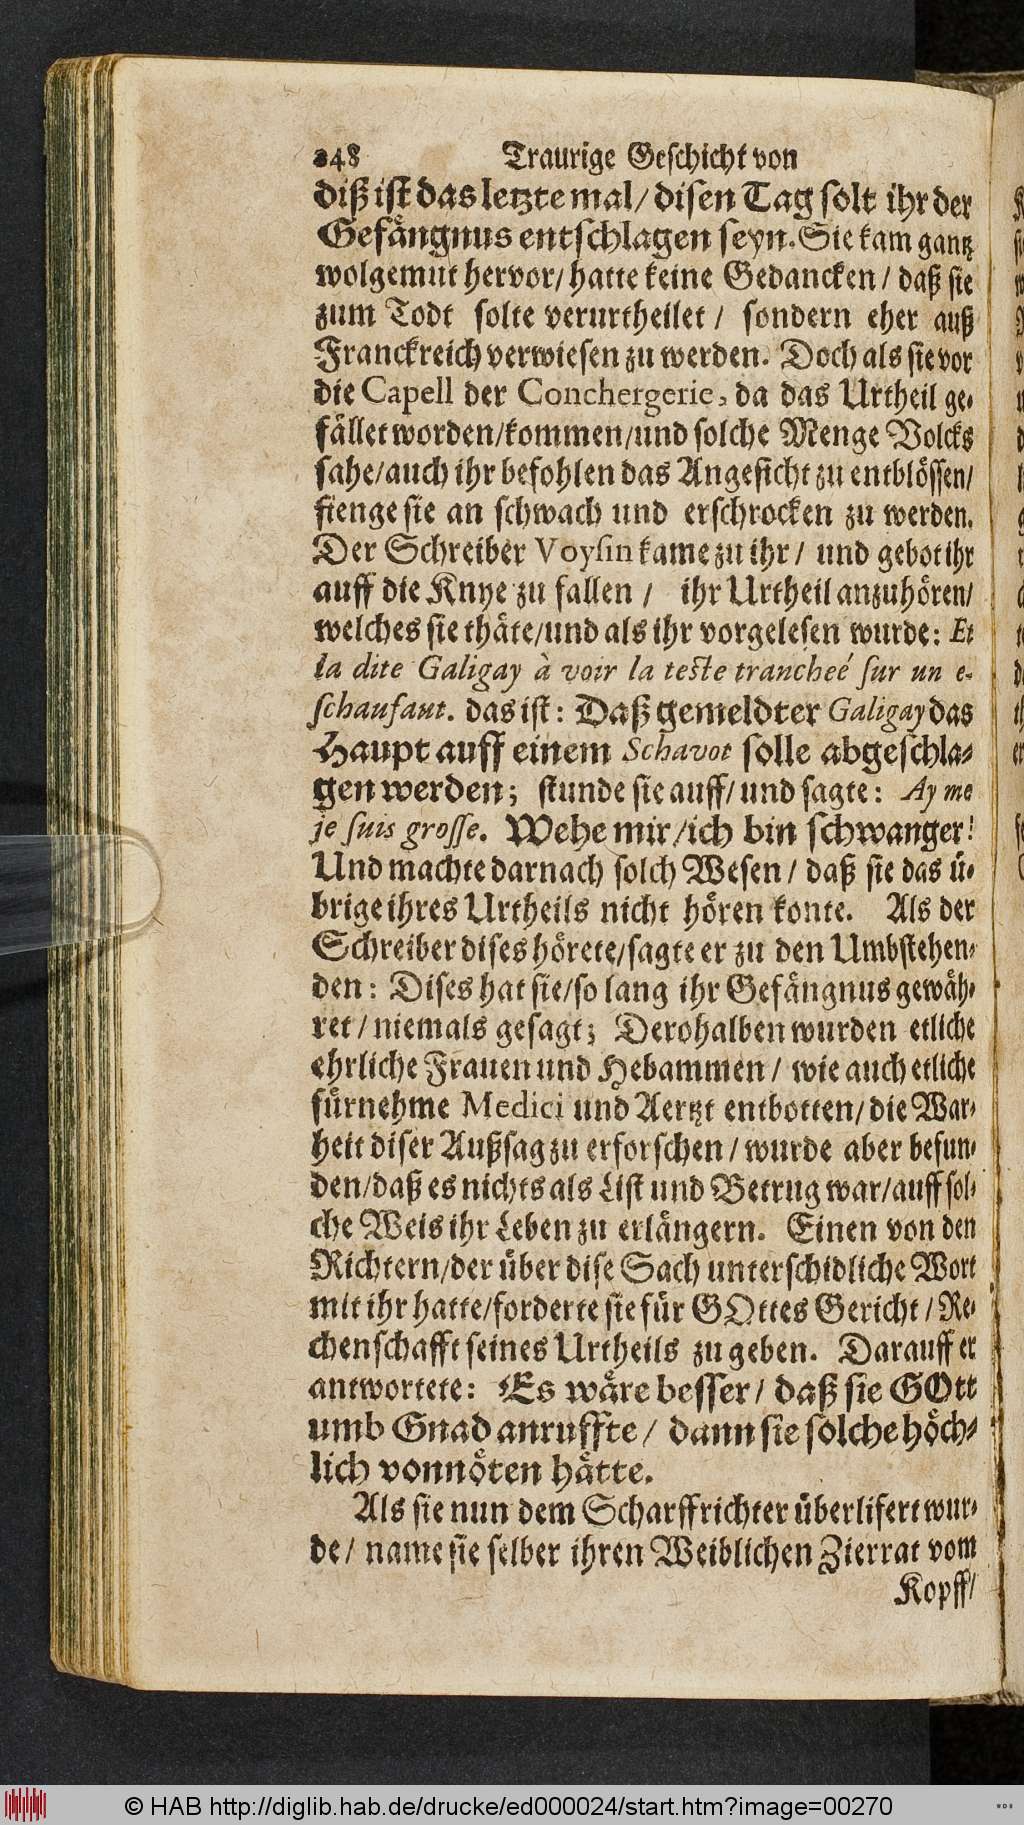 248 Traurige Geschicht von
diß ist das letzte mal/ disen Tag solt ihr der
Gefängnus entschlagen seyn. Sie kam gantz
wolgemut hervor/ hatte keine Gedancken/ daß sie
zum Todt solte verurtheilet/ sondern eher auß
Franckreich verwiesen zu werden. Doch als sie vor
die Capell der Conchergerie, da das Urtheil ge-
fället worden/kommen/und solche Menge Volcks
sahe/auch ihr befohlen das Angesicht zu entblössen/
fienge sie an schwach und erschrocken zu werden.
Der Schreiber Voysin kame zu ihr/ und gebot ihr
auff die Knye zu fallen/ ihr Urtheil anzuhören/
welches sie thäte/und als ihr vorgelesen wurde: Et
la dite Galigay à voir la teste trancheé sur un e-
schaufaut. das ist: Daß gemeldter Galigay das
Haupt auff einem Schavot solle abgeschla-
gen werden; stunde sie auff/ und sagte: Ay me
je suis grosse. Wehe mir/ich bin schwanger!
Und machte darnach solch Wesen/ daß sie das ü-
brige ihres Urtheils nicht hören konte. Als der
Schreiber dises hörete/sagte er zu den Umbstehen-
den: Dises hat sie/so lang ihr Gefängnus gewäh-
ret/ niemals gesagt; Derohalben wurden etliche
ehrliche Frauen und Hebammen/ wie auch etliche
fürnehme Medici und Aertzt entbotten/ die War-
heit diser Außsag zu erforschen/ wurde aber befun-
den/daß es nichts als List und Betrug war/auff sol-
che Weis ihr Leben zu erlängern. Einen von den
Richtern/der über dise Sach unterschidliche Wort
mit ihr hatte/forderte sie für GOttes Gericht/ Re-
chenschafft seines Urtheils zu geben. Darauff er
antwortete: Es wäre besser/ daß sie GOtt
umb Gnad anruffte/ dann sie solche höch-
lich vonnöten hätte.
Als sie nun dem Scharffrichter überlifert wur-
de/ name sie selber ihren Weiblichen Zierrat vom
Kopff/
© HAB http://diglib.hab.de/drucke/ed000024/start.htm?image=00270